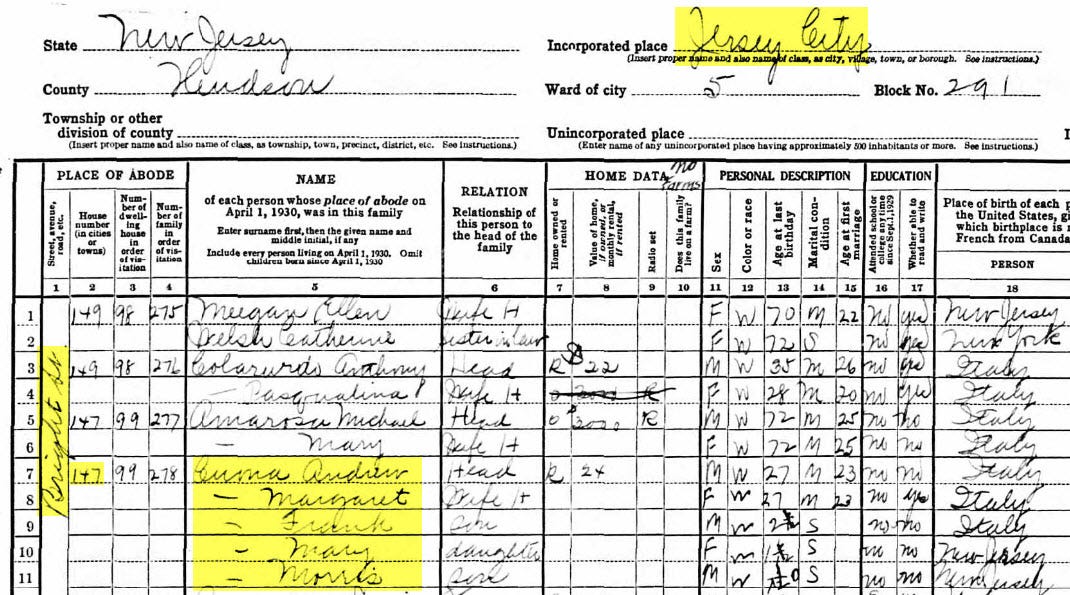 State New Jersey
Incorporated place Jersey City
(Insert proper name and also name of class, as city, village, town, or borough. See instructions.)
County Hudson
Ward of city 5 Block No. 291
Township or other
division of county
(Insert proper name and also name of class, as township, town, precinct, district, etc. See instructions.)
Unincorporated place
(Enter name of any unincorporated place having approximately 500 inhabitants or more. See instructions.)
PLACE OF ABODE
Street, avenue, road, etc.
House number (in cities or towns)
Num-ber of dwell-ing house in order of vis-itation
Num-ber of family in order of vis-itation
NAME
of each person whose place of abode on
April 1, 1930, was in this family
Enter surname first, then the given name and
middle initial, if any
Include every person living on April 1, 1930. Omit
children born since April 1, 1930
RELATION
Relationship of
this person to
the head of the
family
HOME DATA no farms
Home owned or rented
Value of home, if owned, or monthly rental, if rented
Radio set
Does this family live on a farm?
PERSONAL DESCRIPTION
Sex
Color or race
Age at last birthday
Marital con-dition
Age at first marriage
EDUCATION
Attended school or college any time since Sept. 1, 1929
Whether able to read and write
Place of birth of each p
the United States, gi
which birthplace is n
French from Canada
PERSON
1 2 3 4 5 6 7 8 9 10 11 12 13 14 15 16 17 18
Bright St.
1 149 98 275 Meegan Ellen Wife H F W 70 M 22 no yes New Jersey
2 Welsh Catherine sister in law F W 72 S no yes New York
3 149 98 276 Colarurdo Anthony Head R $ 22 M W 35 M 26 no yes Italy
4 — Pasqualina Wife H R F W 28 M 20 no yes Italy
5 147 99 277 Amarosa Michael Head O 3000 R M W 72 M 25 no no Italy
6 — Mary Wife H F W 72 M 25 no no Italy
7 147 99 278 Cuma Andrew Head R 24 M W 27 M 23 no no Italy
8 — Margaret Wife H F W 27 M 23 no yes Italy
9 — Frank son M W S no no Italy
10 — Mary daughter F W S no no New Jersey
11 — Morris son M W S no no New Jersey